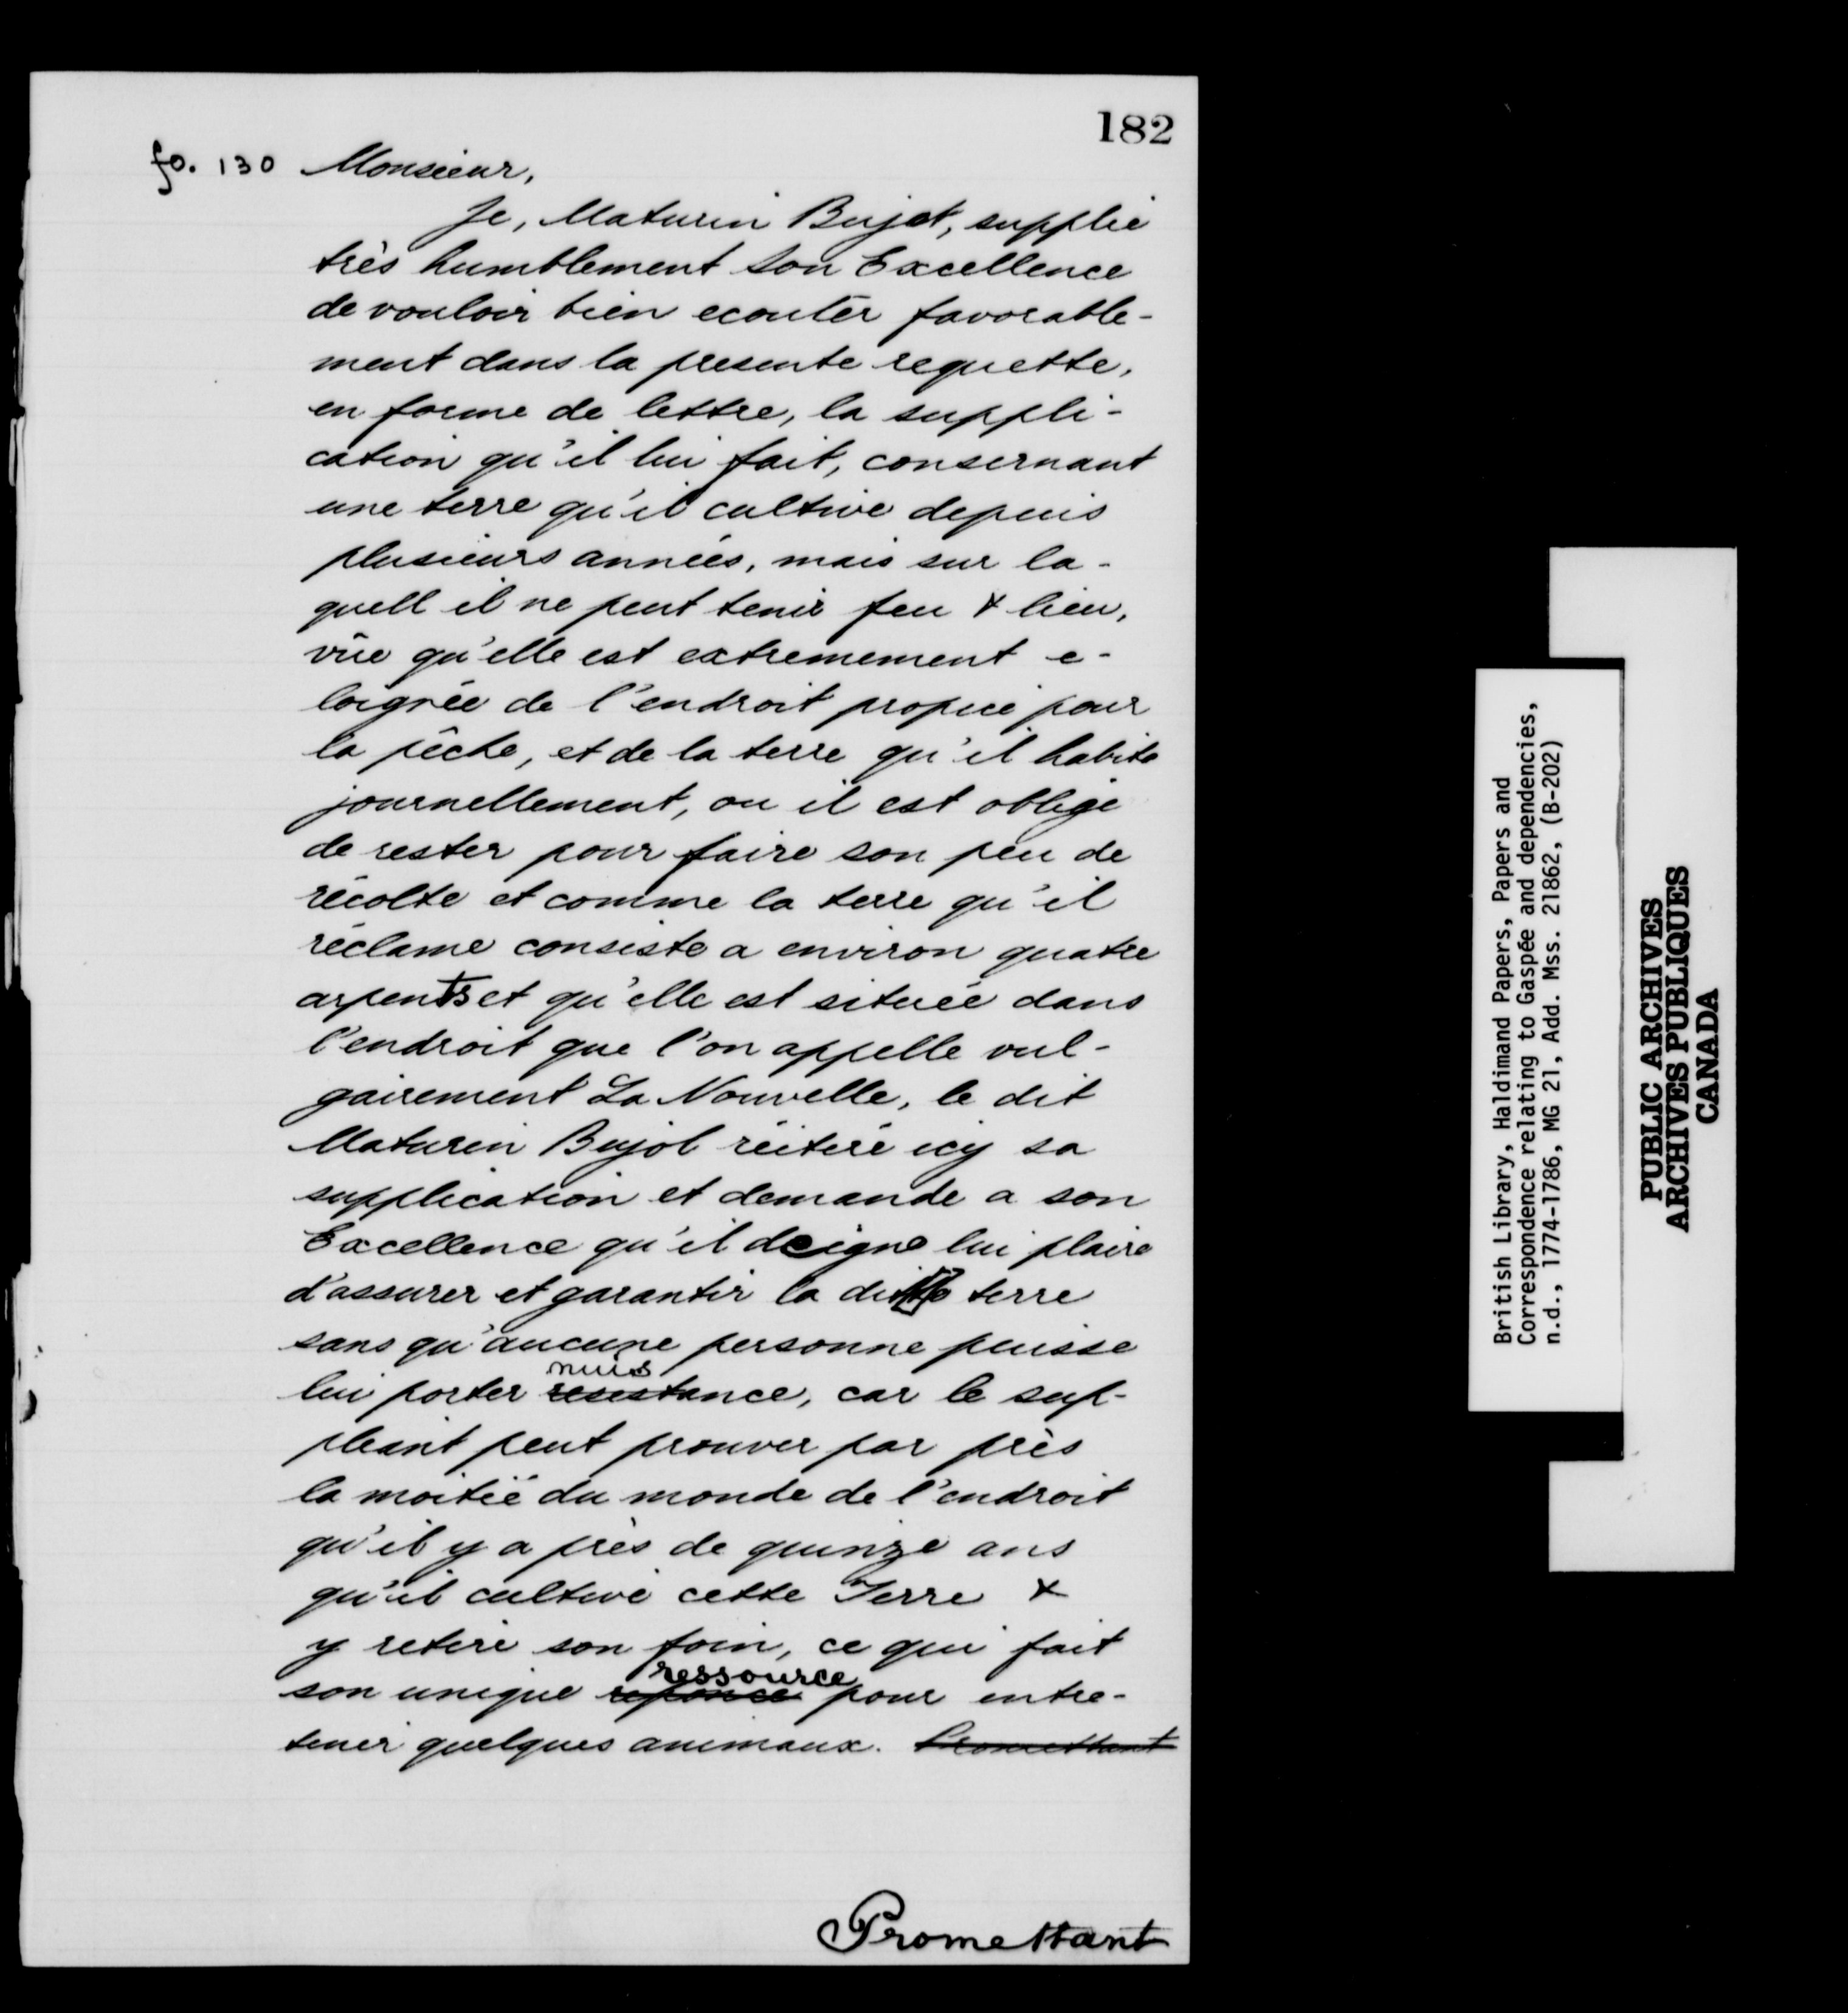 182
fo. 130 Monsieur,
Je, Maturin Bujot, supplie
très humblement son Excellence
de vouloir bien ecouter favorable-
ment dans la presente requette,
en forme de lettre, la suppli-
cation qu'il lui fait, consernant
une terre qu'il cultive depuis
plusieurs années, mais sur la-
quell il ne peut tenir feu & lieu,
vûe qu'elle est extremement e-
loignée de l'endroit propice pour
la pêche, et de la terre qu'il habite
journellement, ou il est obligé
de rester pour faire son peu de
récolte et comme la terre qu'il
réclame consiste a environ quatre
arpents et qu'elle est située dans
l'endroit que l'on appelle vul-
gairement La Nouvelle, le dit
Maturin Bujol réitere icy sa
supplication et demande a son
Excellence qu'il deigne lui plaire
d'assurer et garantir la ditte terre
sans qu'aucune personne puisse
nuis
lui porter resistance, car le sup-
pleant peut prouver par près
la moitié du monde de l'endroit
qu'il y a près de quinze ans
qu'il cultive cette Terre &
y retire son foin, ce qui fait
ressource
son unique reponce pour entre-
tenir quelques animaux. Promettant
Promettant
British Library, Haldimand Papers, Papers and
Correspondence relating to Gaspée and dependencies,
n.d., 1774-1786, MG 21, Add. Mss. 21862, (B-202)
PUBLIC ARCHIVES
ARCHIVES PUBLIQUES
CANADA